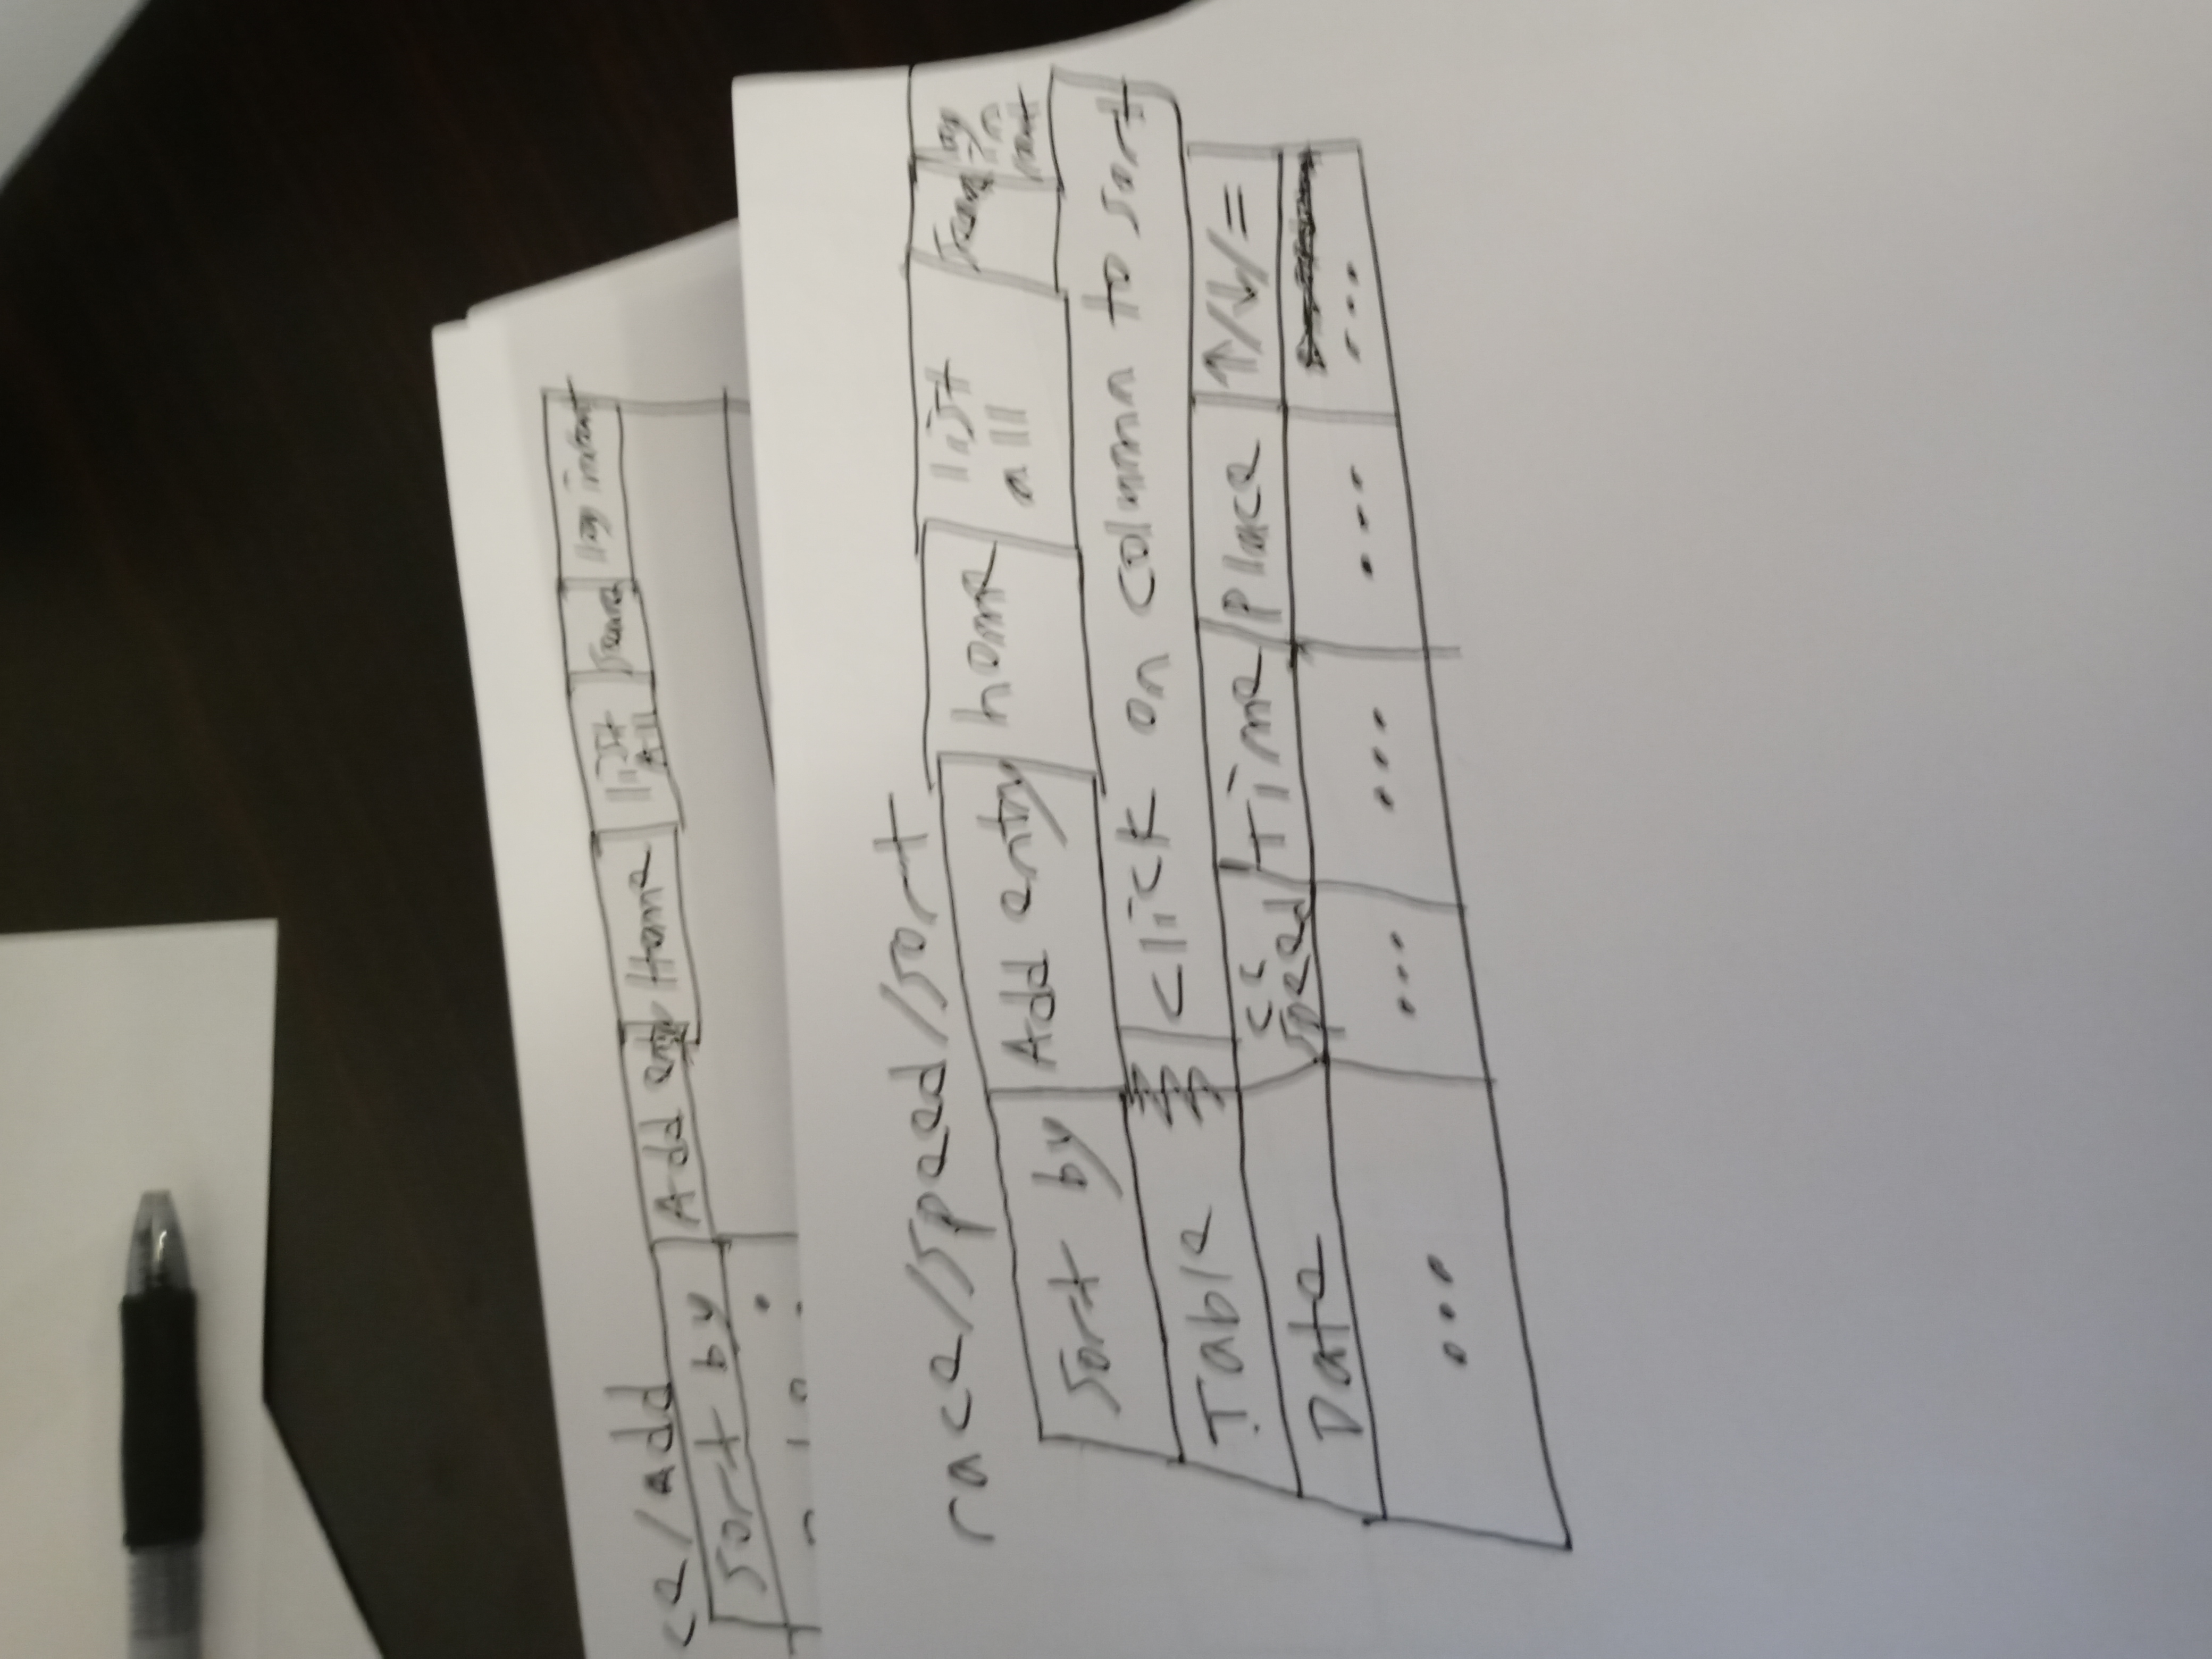 ce/Add
Sort by Add entry Home list All Search log in/out
race/speed/sort
Sort by Add entry home list all log in /out
Table click on column to sort
Date cc speed time place ↑/↓/=
... ... ... ... ...